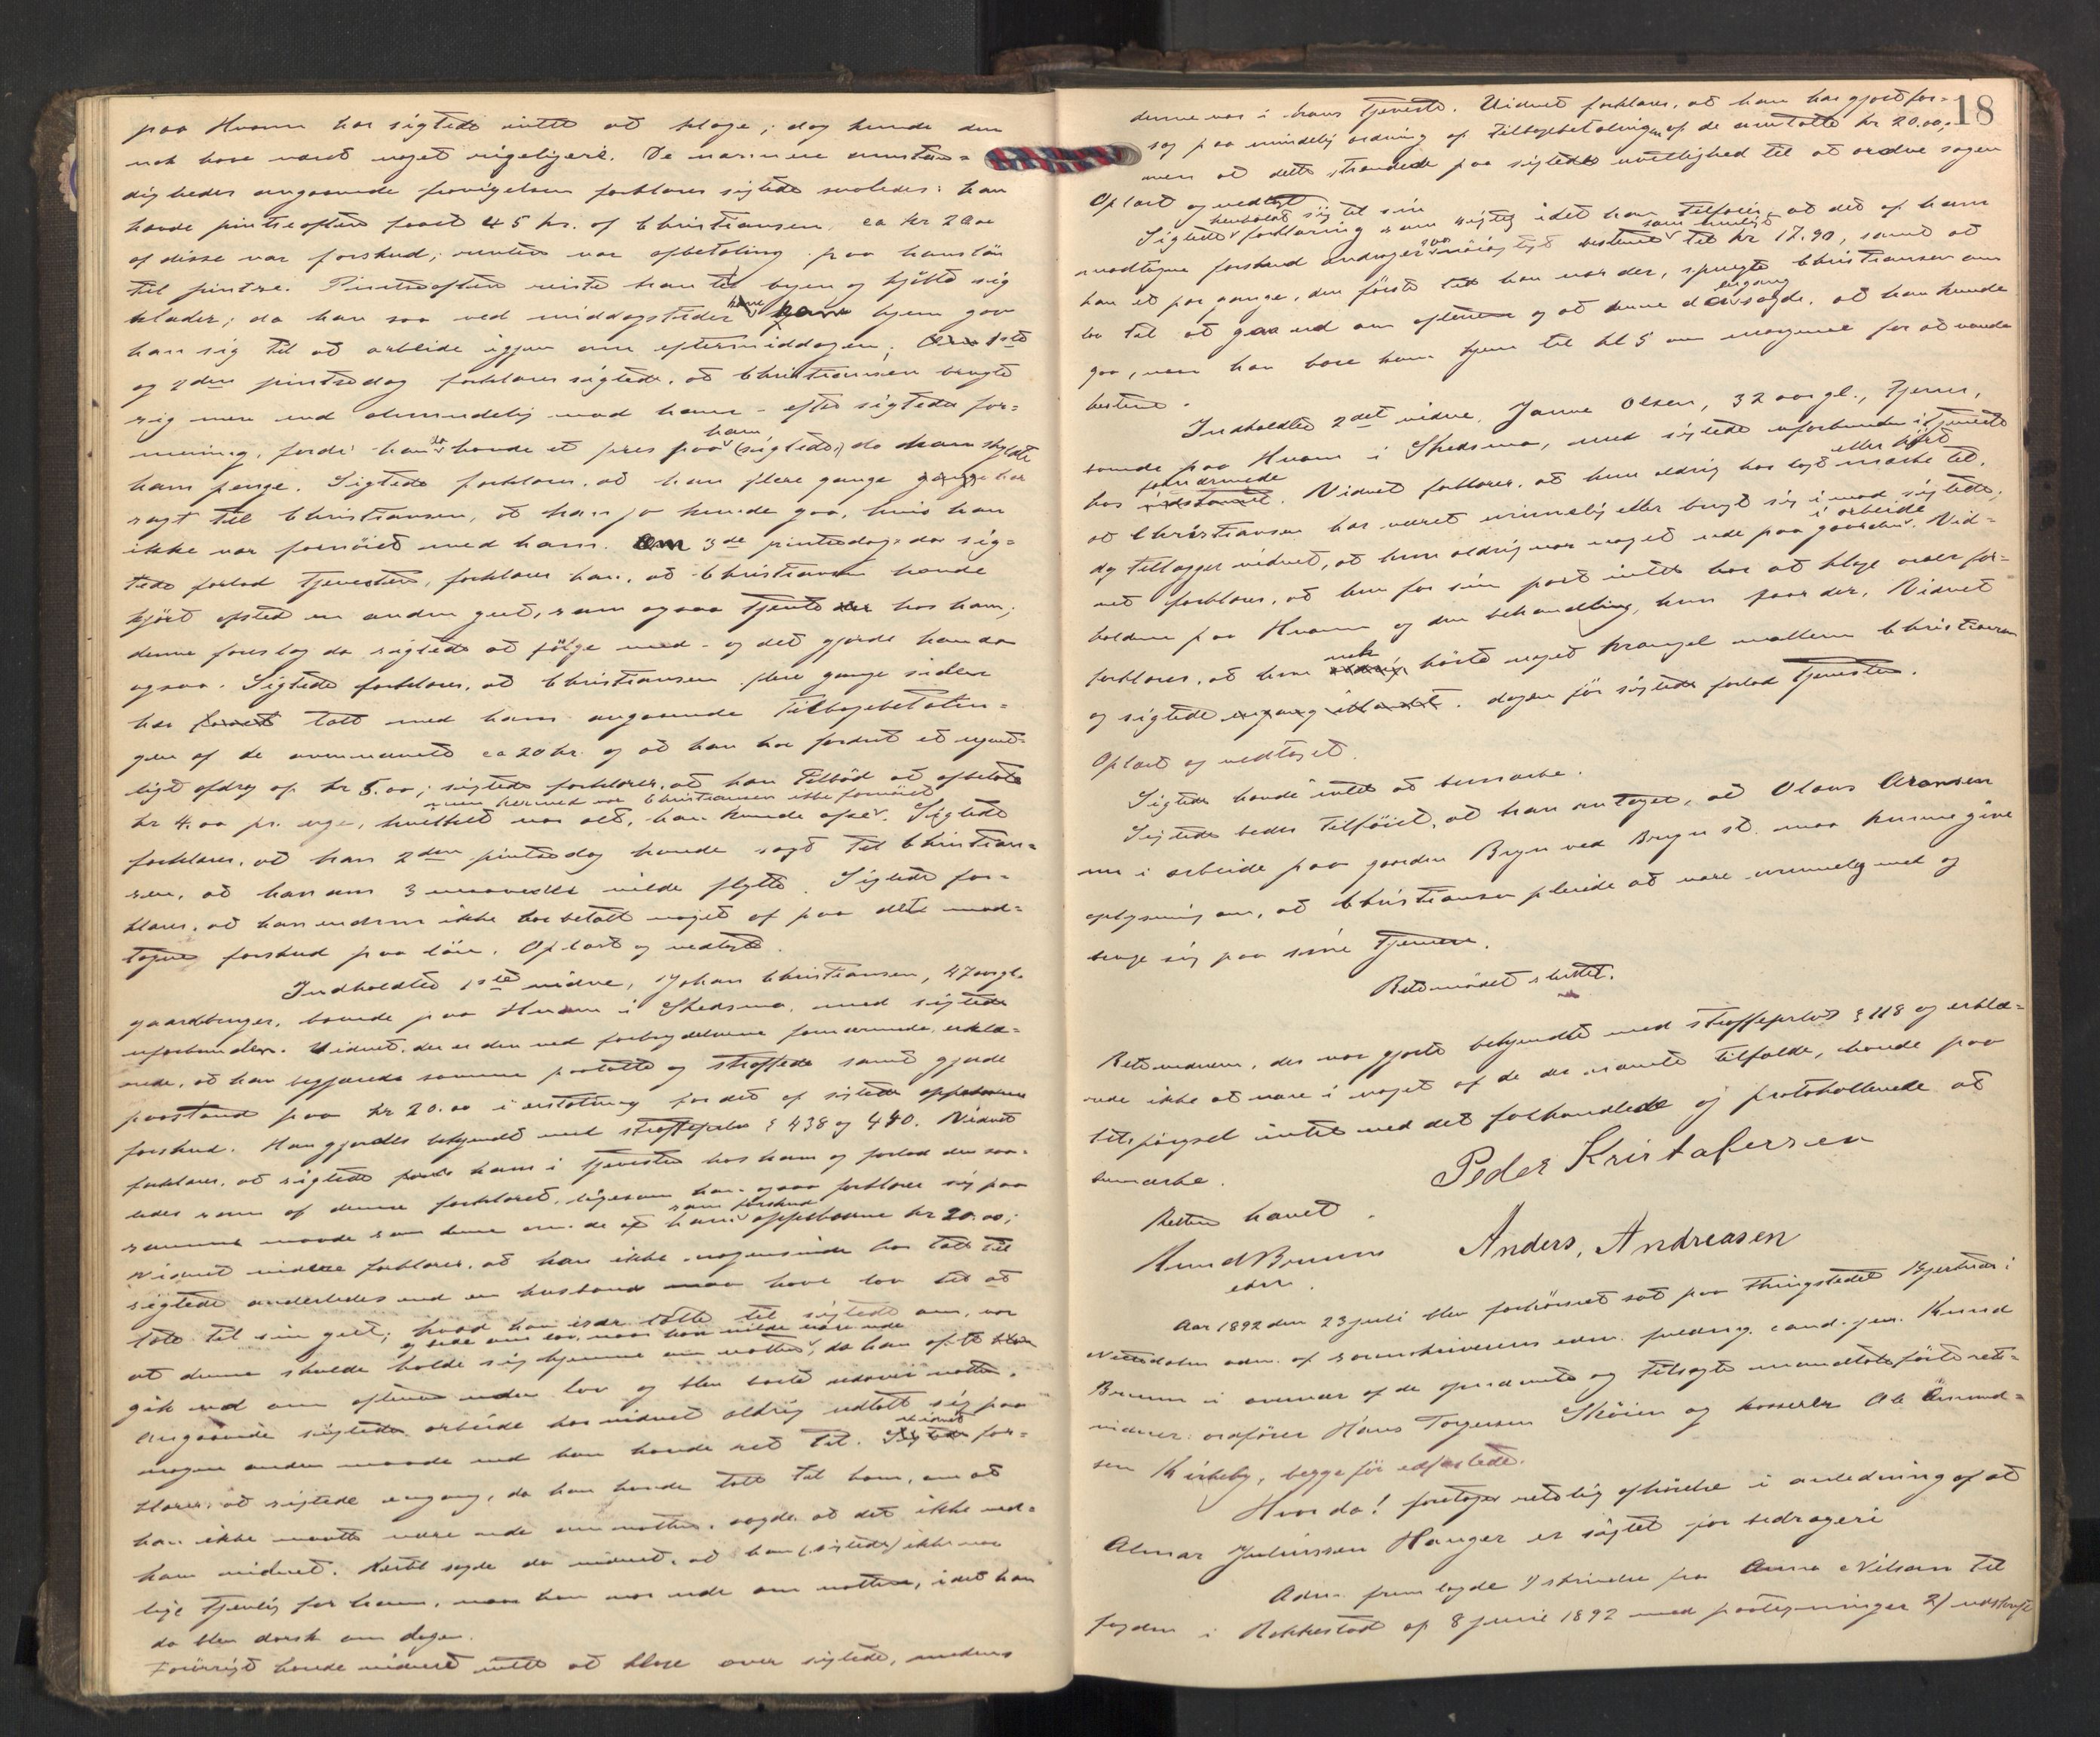 paa Hvam har sigtede intet at klage; dog kunde den
nok have været noget rigeligere. De nærmere omstæn=
digheder angaaende fravigelsen forklarer sigtede saaledes: han
havde pintseaften faaet 45 kr. af Christiansen, ca kr 20.00
af disse var forskud, resten var afbetaling paa hans løn
til pintse. Pintseaften reiste han til byen og kjøbte sig
klæder; da han saa ved middagstider kom hjem gav
han sig til at arbeide igjen om eftermiddagen. 1ste
og 2den pintsedag forklarer sigtede, at Christiansen brugte
sig mere end almindelig mod ham - efter sigtedes for=
mening, fordi han da havde et pres paa ham (sigtede), da han skyldte
ham penge. Sigtede forklarer, at han flere gange har
sagt til Christiansen, at han jo kunde gaa, hvis han
ikke var fornøiet med ham. 3de pintsedag, da sig=
tede forlod tjenesten, forklarer han, at Christiansen havde
kjørt afsted en anden gut, som ogsaa tjente hos ham;
denne foreslog da sigtede at følge med - og det gjorde han da
ogsaa. Sigtede forklarer, at Christiansen flere gange siden
har talt med ham angaaende tilbagebetalin=
gen af de omhandlede ca 20 kr. og at han har fordret et ugent=
ligt afdrag af kr 5.00; sigtede forklarer, at han tilbød at afbetale
kr 4.00 pr. uge, hvilket var alt, han kunde afse, men hermed var Christiansen ikke fornøiet. Sigtede
forklarer, at han 2den pintsedag havde sagt til Christian=
sen, at han om 3 maaneder vilde flytte. Sigtede for=
klarer, at han endnu ikke har betalt noget af paa det mod=
tagne forskud paa løn. Oplæst og vedtaget.
Indkaldtes 1ste vidne, Johan Christiansen, 47 aar gl.
gaardbruger, boende paa Hvam i Skedsmo, med sigtede
uforbunden. Vidnet, der er den ved forbrydelsen fornærmede, erklæ=
rede, at han begjærede samme paatalt og straffet samt gjorde
paastand paa kr 20.00 i erstatning for det af sigtede oppebaarne
forskud. Han gjordes bekjendt med straffeprlov § 438 og 440. Vidnet
forklarer, at sigtede kom i tjeneste hos ham og forlod den saa=
ledes som af denne forklaret, ligesom han ogsaa forklarer sig paa
samme maade som denne om de af ham som forskud oppebaarne kr 20.00;
Vidnet videre forklarer, at han ikke nogensinde har talt til
sigtede anderledes end en husbond maa have lov til at
tale til sin gut; hvad han især talte til sigtede om, var
at denne skulde holde sig hjemme om natten og bede om lov, naar han vilde være ude, da han ofte
gik ud om aftenen uden lov og blev borte udover natten.
Angaaende sigtedes arbeide har vidnet aldrig udtalt sig paa
nogen anden maade end han havde ret til. Vidnet for=
klarer, at sigtede engang, da han havde talt til ham, om at
han ikke maatte være ude om natten, sagde at det ikke ved=
kom vidnet. Hertil sagde da vidnet, at han (sigtede) ikke var
lige tjenlig for ham, naar han var ude om natten, idet han
da blev dorsk om dagen.
Forøvrigt havde vidnet intet at klage over sigtede, medens
18
denne var i hans tjeneste. Vidnet forklarer, at han har gjort for=
søg paa mindelig ordning af tilbagebetalingen af de omtalte kr 20.00,
men at dette strandede paa sigtedes uvillighed til at ordne sagen
Oplæst og vedtaget.
Sigtede henholdt sig til sin forklaring som rigtig idet han tilføier, at det af ham
modtagne forskud androg nøiagtigt bestemt til kr 17.90, samt at
han et par gange, den første tid han var der, spurgte Christiansen om
lov til at gaa ud om aftenen og at denne da engang sagde, at han kunde
gaa, men han bare kom hjem til kl 5 om morgenen for at vande
hestene.
Indkaldtes 2det vidne, Janne Olsen, 32 aar gl., tjener,
boende paa Hvam i Skedsmo, med sigtede uforbunden i tjeneste
hos fornærmede. Vidnet forklarer, at hun aldrig har lagt mærke til eller hørt
at Christiansen har været urimelig eller brugt sig imod sigtede,
dog tillægger vidnet, at hun aldrig var noget ude paa gaarden i arbeide. Vid=
net forklarer, at hun for sin part intet har at klage over for=
holdene paa Hvam og den behandling, hun faar der. Vidnet
forklarer, at hun nok hørte noget krangel mellem Christiansen
og sigtede dagen før sigtede forlod tjenesten.
Oplæst og vedtaget.
Sigtede havde intet at bemærke.
Sigtede bedes tilføiet, at han antager, at Olaus Aronsen
nu i arbeide paa gaarden Bryn ved Bryn st. maa kunne give
oplysning om, at Christiansen pleide at være urimelig med og
bruge sig paa sine tjenere.
Retsmødet sluttet.
Retsvidnerne, der var gjorte bekjendte med straffeprlovs § 118 og erklæ=
rede ikke at være i noget af de der nævnte tilfælde, havde paa
tilspørgsel intet ved det forhandlede og protokollerede at
bemærke.
Peder Kristafersen
Retten hævet.
Knud Bruun
edsv.
Anders, Andreasen
Aar 1892 den 23 juli blev forhørsret sat paa thingstedet Kjerstad i
Nittedalen adm. af sorenskriverens edsv. fuldmg. cand. jur. Knud
Bruun i overvær af de opnævnte og tilsagte mandtalsførte rets=
vidner: ordfører Hans Torgersen Skøien og kasserer Ole Amund=
sen Kirkeby, begge før edfæstede.
Hvorda! foretoges retslig afhørelse i anledning af at
Almar Juliussen Hauger er sigtet for bedrageri
Adm. fremlagde 1) skrivelse fra Anna Nilsen til
fogden i Rakkestad af 8 juni 1892 med paategninger 2) udskrift